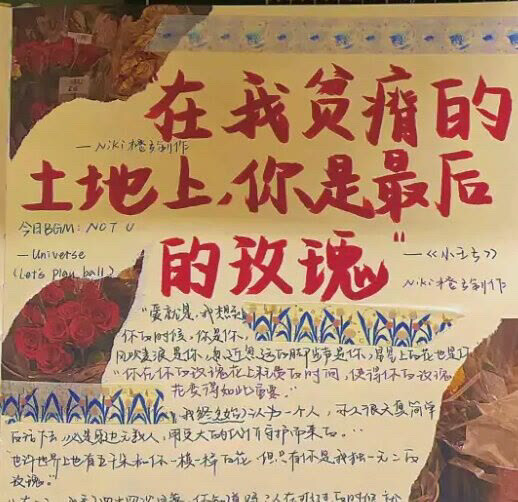 "在我贫瘠的
— Niki橙子制作
土地上,你是最后
今日BGM: NOT U
— Universe
(Let's play ball)
的玫瑰"
—《小王子》
Niki橙子制作
"爱就是,我想
你的时候,你是你,
风吹麦浪是你,
"你在你的玫瑰花上耗费的时间,使得你的玫瑰
花变得如此重要."
我 认为一个人,可以很天真简单
的活下去,必是身边无数人,用更大的代价守护而来的."
也许世界上也有五千朵和你一模一样的花,但只有你是我独一无二的
玫瑰."